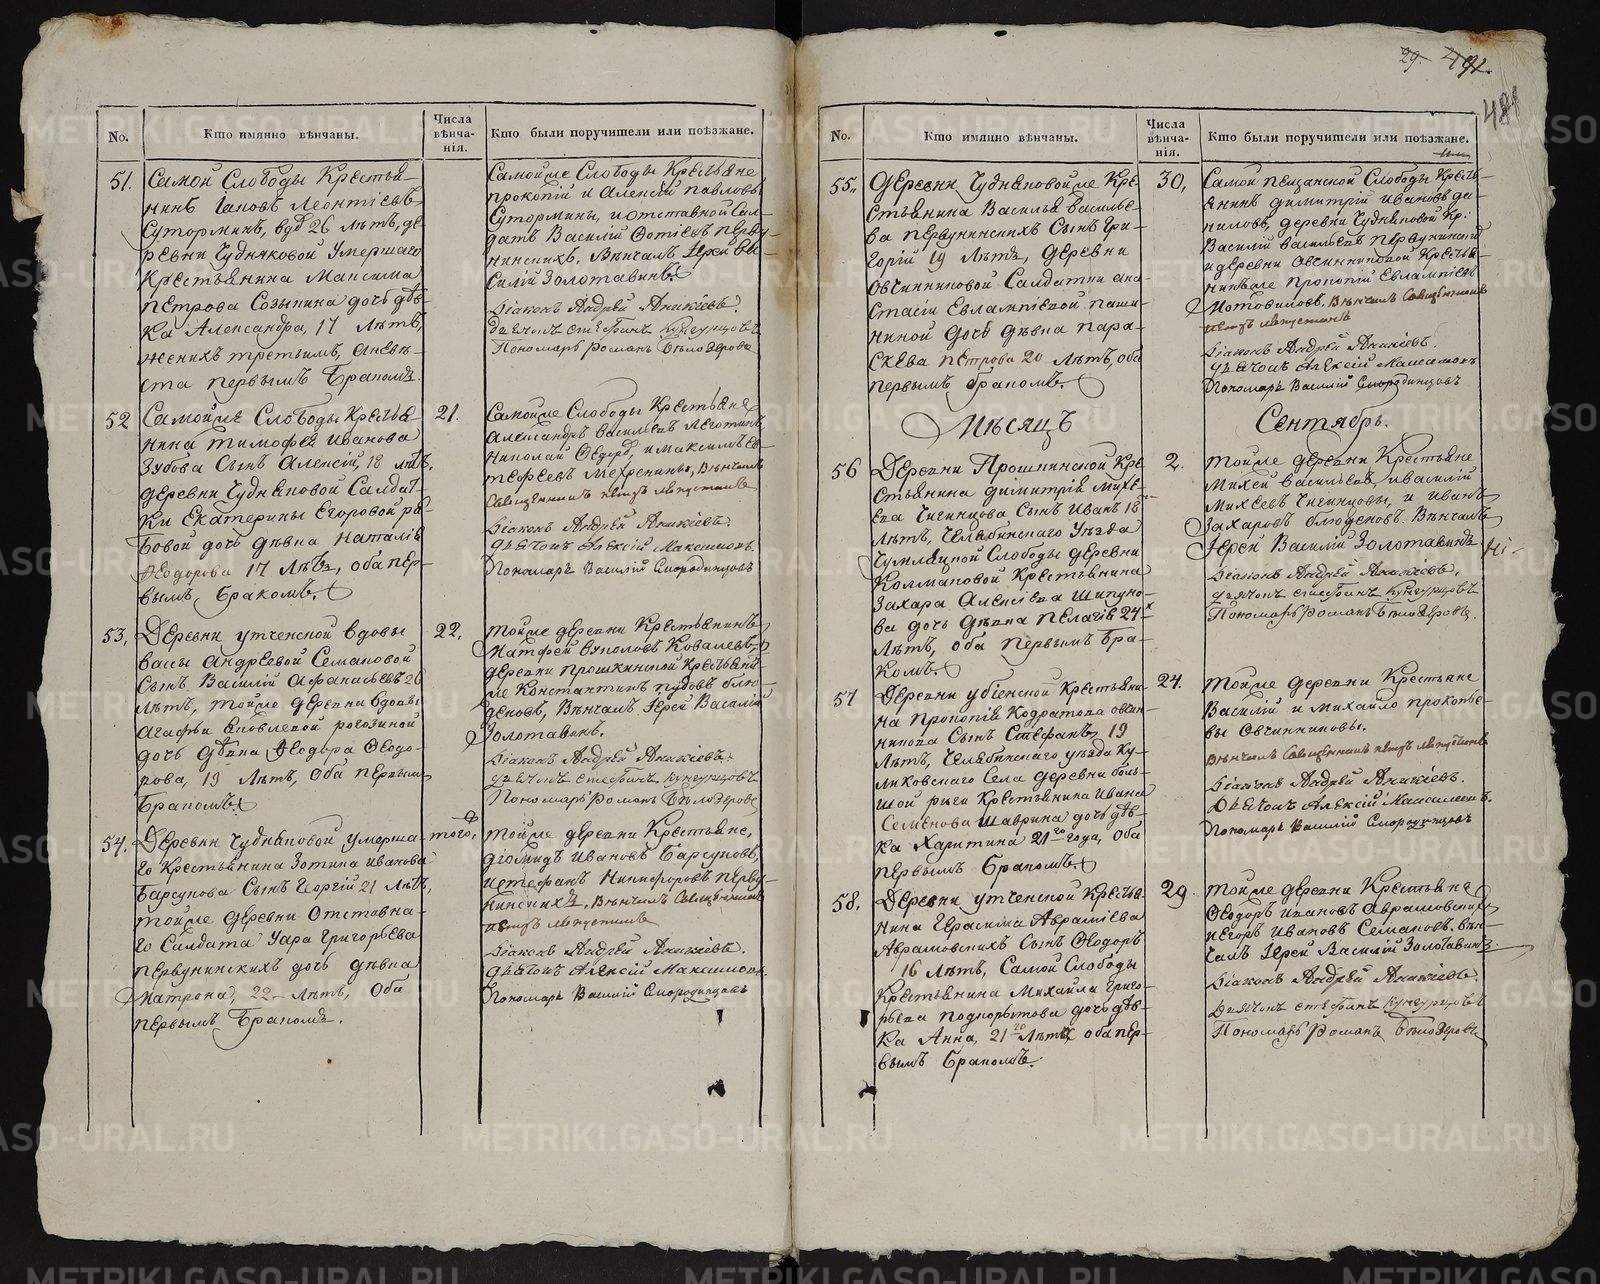 29. 491.
481
No. Кто имянно вѣнчаны. Числа вѣнча-нія. Кто были поручители или поѣзжане.
51. Самой Слободы Крестья-
нинъ Іаковъ Леонтіевъ
Сутормин, вдѣ 26 лѣтъ, де-
ревни Чудняковой Умершаго
Крестьянина Максима
Петрова Созыкина дочь дѣв-
ка Александра, 17 лѣтъ,
женихъ третьимъ, а невѣ-
ста первымъ Бракомъ.
Самой же Слободы Крестьяне
прокопій и Алексій павловы
Сутормины, и отставной Сол-
датъ Василій Фотіевъ перву-
нинскихъ. Вѣнчалъ Іерей Ва-
силій Золотавинъ
Діаконъ Андрей Аникіевъ.
Дьячокъ стефанъ Кунгурцовъ
Пономарь романъ Бѣлозеровъ
52 Самой же Слободы Крестья-
нина тимофея иванова
Зубова Сынъ Алексій, 18 лѣтъ,
деревни Чудняковой Салдат-
ки Екатерины Егоровой ря-
бовой дочь дѣвка Наталія
Ѳеодорова 17 лѣтъ, оба пер-
вымъ Бракомъ.
21.
Самой же Слободы Крестьяне
Александръ васильевъ
Николай Ѳедоровъ, и максимъ Ев-
тефеевъ Мехренины, Вѣнчалъ
Священникъ петръ
Діаконъ Андрей Аникіевъ.
Дьячокъ Алексій Максимовъ.
Пономарь Василій Смородинцовъ
53, Деревни утченской вдовы
вассы Андреевой Семаковой
Сынъ Василій Афанасьевъ 20
лѣтъ, той же деревни вдовы
Агафьи Яковлевой рогозиной
дочь дѣвка Ѳеодора Ѳеодо-
рова, 19 лѣтъ, оба первымъ
Бракомъ
22,
той же деревни Крестьянинъ
Матфей Ковалевъ,
деревни прошкинской Крестьяни-
не Константинъ пудовъ блю-
деновъ, Вѣнчалъ Іерей Василій
Золотавинъ.
Діаконъ Андрей Аникіевъ.
Дьячокъ стефанъ Кунгурцовъ
Пономарь романъ Бѣлозеровъ
54. Деревни Чудняковой умерша-
го Крестьянина Зотика иванова
Барсукова Сынъ Георгій 21 лѣтъ,
той же деревни Отставна-
го Салдата Уара Григорьева
первунинскихъ дочь дѣвка
Матрона, 22 лѣтъ, Оба
первымъ Бракомъ.
того,
той же деревни Крестьяне,
діомидъ ивановъ Барсуковъ,
и стефанъ Никифоровъ перву-
нинскихъ, Вѣнчалъ Священникъ
петръ
Діаконъ Андрей Аникіевъ.
Дьячокъ Алексій Максимовъ.
Пономарь Василій Смородинцовъ
No. Кто имянно вѣнчаны. Числа вѣнча-нія. Кто были поручители или поѣзжане.
55. Деревни Чудняковой же Кре-
стьянина Василья Василье-
ва первунинскихъ Сынъ Гри-
горій 19 лѣтъ, деревни
Овчинниковой Салдатки ана-
стасіи Евлампіевой паши-
ниной дочь дѣвка пара-
скева петрова 20 лѣтъ, оба
первымъ бракомъ.
30,
Самой пещанской Слободы Кресть-
янинъ димитрій ивановъ да-
ниловъ, деревни Чудняковой Кр:
Василій васильевъ первунинскій
и деревни Овчинниковой Кресть-
нинъ же прокопій Евлампіевъ
Мотовиловъ. Вѣнчалъ Священникъ
петръ
Діаконъ Андрей Аникіевъ.
дьячокъ Алексій Максимовъ
Пономарь Василій Смородинцовъ
Мѣсяцъ Сентябрь.
56 Деревни Прошкинской Кре-
стьянина димитрія михе-
ева Чигинцова Сынъ Иванъ 18
лѣтъ, Челябинскаго Уѣзда
Чумляцкой Слободы деревни
Колмаковой Крестьянина
Захара Алексіева Шипуно-
ва дочь дѣвка Пелагія 24х
лѣтъ, оба первымъ Бра-
комъ.
2.
той же деревни Крестьяне
Михей васильевъ, и василій
Михеевъ Чигинцовы, и иванъ
Захаровъ блюденовъ. Вѣнчалъ
Іерей Василій Золотавинъ.
Діаконъ Андрей Аникіевъ.
дьячокъ стефанъ Кунгурцовъ
Пономарь романъ Бѣлозеровъ.
57 Деревни убіенской Крестьяни-
на Прокопія Кодратова овчин-
никова Сынъ Стефанъ, 19
лѣтъ, Челябинскаго уѣзда Ку-
ликовскаго Села деревни боль-
шой риги Крестьянина ивана
Семенова шаврина дочь дѣв-
ка Харитина 21го года, Оба
первымъ Бракомъ.
24.
той же деревни Крестьяне
Василій и Михайло прокопье-
вы Овчинниковы.
Вѣнчалъ Священникъ петръ
Діаконъ Андрей Аникіевъ.
Дьячокъ Алексій Максимовъ.
Пономарь Василій Смородинцовъ
58. Деревни утченской Крестья-
нина Герасима Авраміева
Аврамовскихъ Сынъ Ѳеодоръ
16 лѣтъ, Самой Слободы
Крестьянина Михаила Григо-
рьева подкорытова дочь дѣв-
ка Анна, 21 лѣтъ оба пер-
вымъ Бракомъ.
29
той же деревни Крестьяне
Ѳеодоръ ивановъ Аврамовскихъ
и Егоръ ивановъ Семаковъ. вѣн-
чалъ Іерей Василій Золотавинъ.
Діаконъ Андрей Аникіевъ.
Дьячокъ стефанъ Кунгурцовъ
Пономарь романъ Бѣлозеровъ
METRIKI.GASO-URAL.RU